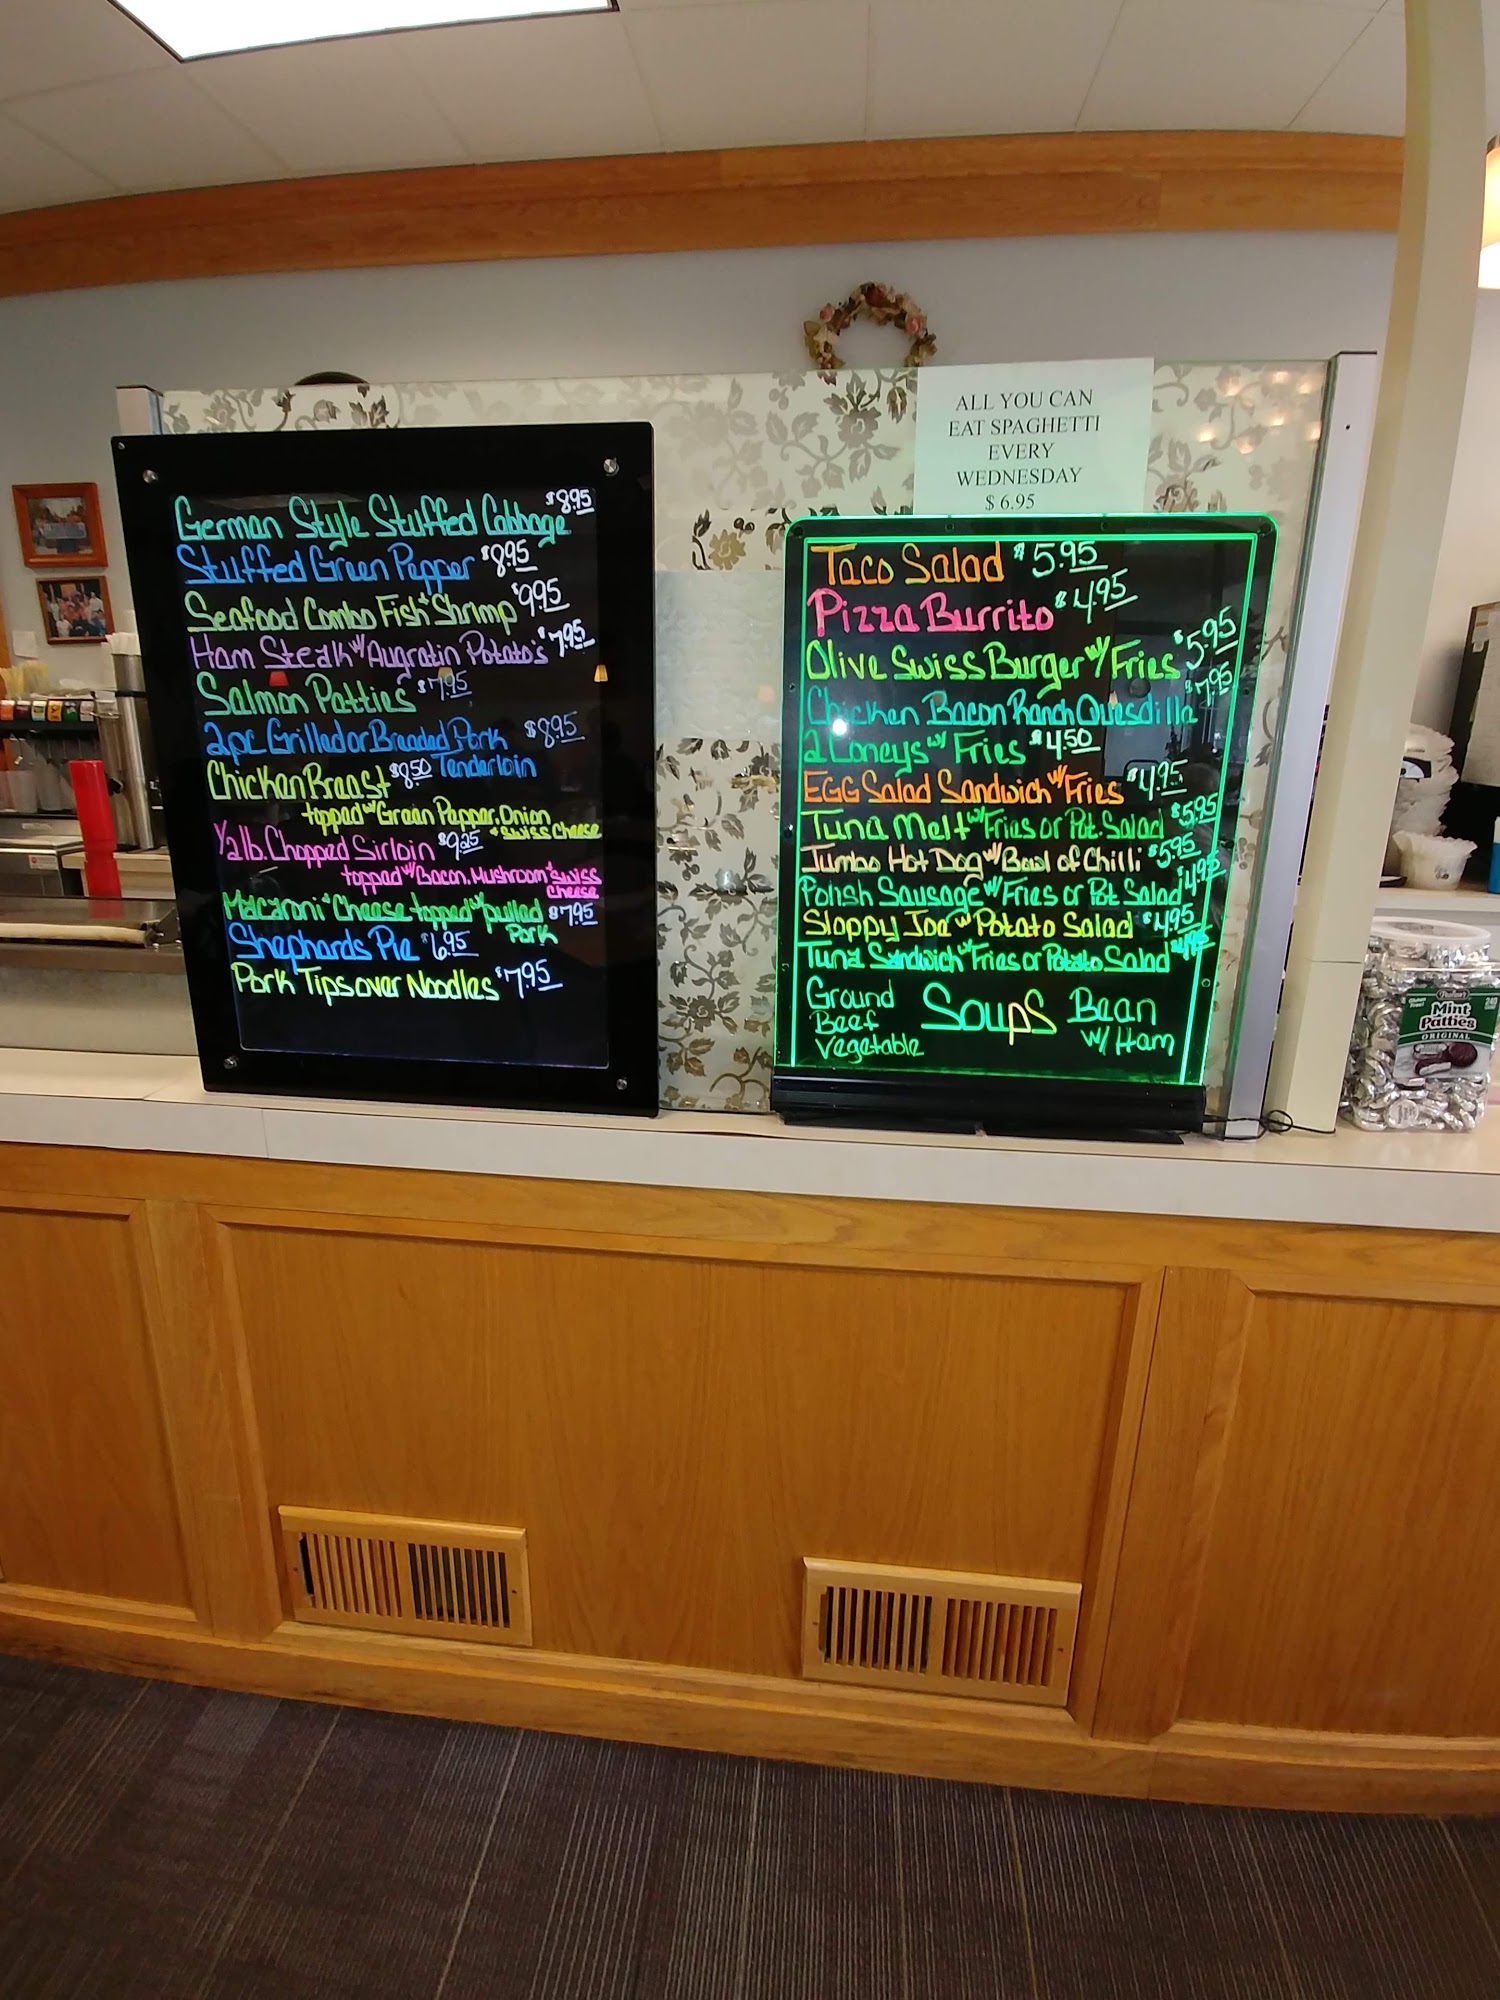 German Style Stuffed Cabbage $8.95
Stuffed Green Pepper $8.95
Seafood Combo Fish & Shrimp $9.95
Ham Steak w/ Augratin Potato's $7.95
Salmon Patties $7.95
2pc Grilled or Breaded Pork $8.95
Tenderloin
Chicken Breast $8.50
topped w/ Green Pepper, Onion
& Swiss Cheese
1/2 lb. Chopped Sirloin $9.25
topped w/ Bacon, Mushroom & Swiss
Cheese
Macaroni & Cheese topped w/ pulled $7.95
Pork
Shephards Pie $6.95
Pork Tips over Noodles $7.95
ALL YOU CAN
EAT SPAGHETTI
EVERY
WEDNESDAY
$ 6.95
Taco Salad $5.95
Pizza Burrito $4.95
Olive Swiss Burger w/ Fries $5.95
Chicken Bacon Ranch Quesdilla $7.95
2 Coneys w/ Fries $4.50
EGG Salad Sandwich w/ Fries $4.95
Tuna Melt w/ Fries or Pot. Salad $5.95
Jumbo Hot Dog w/ Bowl of Chilli $5.95
Polish Sausage w/ Fries or Pot Salad $4.95
Sloppy Joe w/ Potato Salad $4.95
Tuna Sandwich w/ Fries or Potato Salad $4.95
Soups
Ground
Beef
Vegetable
Bean
w/ Ham
Pearson's
Mint
Patties
ORIGINAL
240